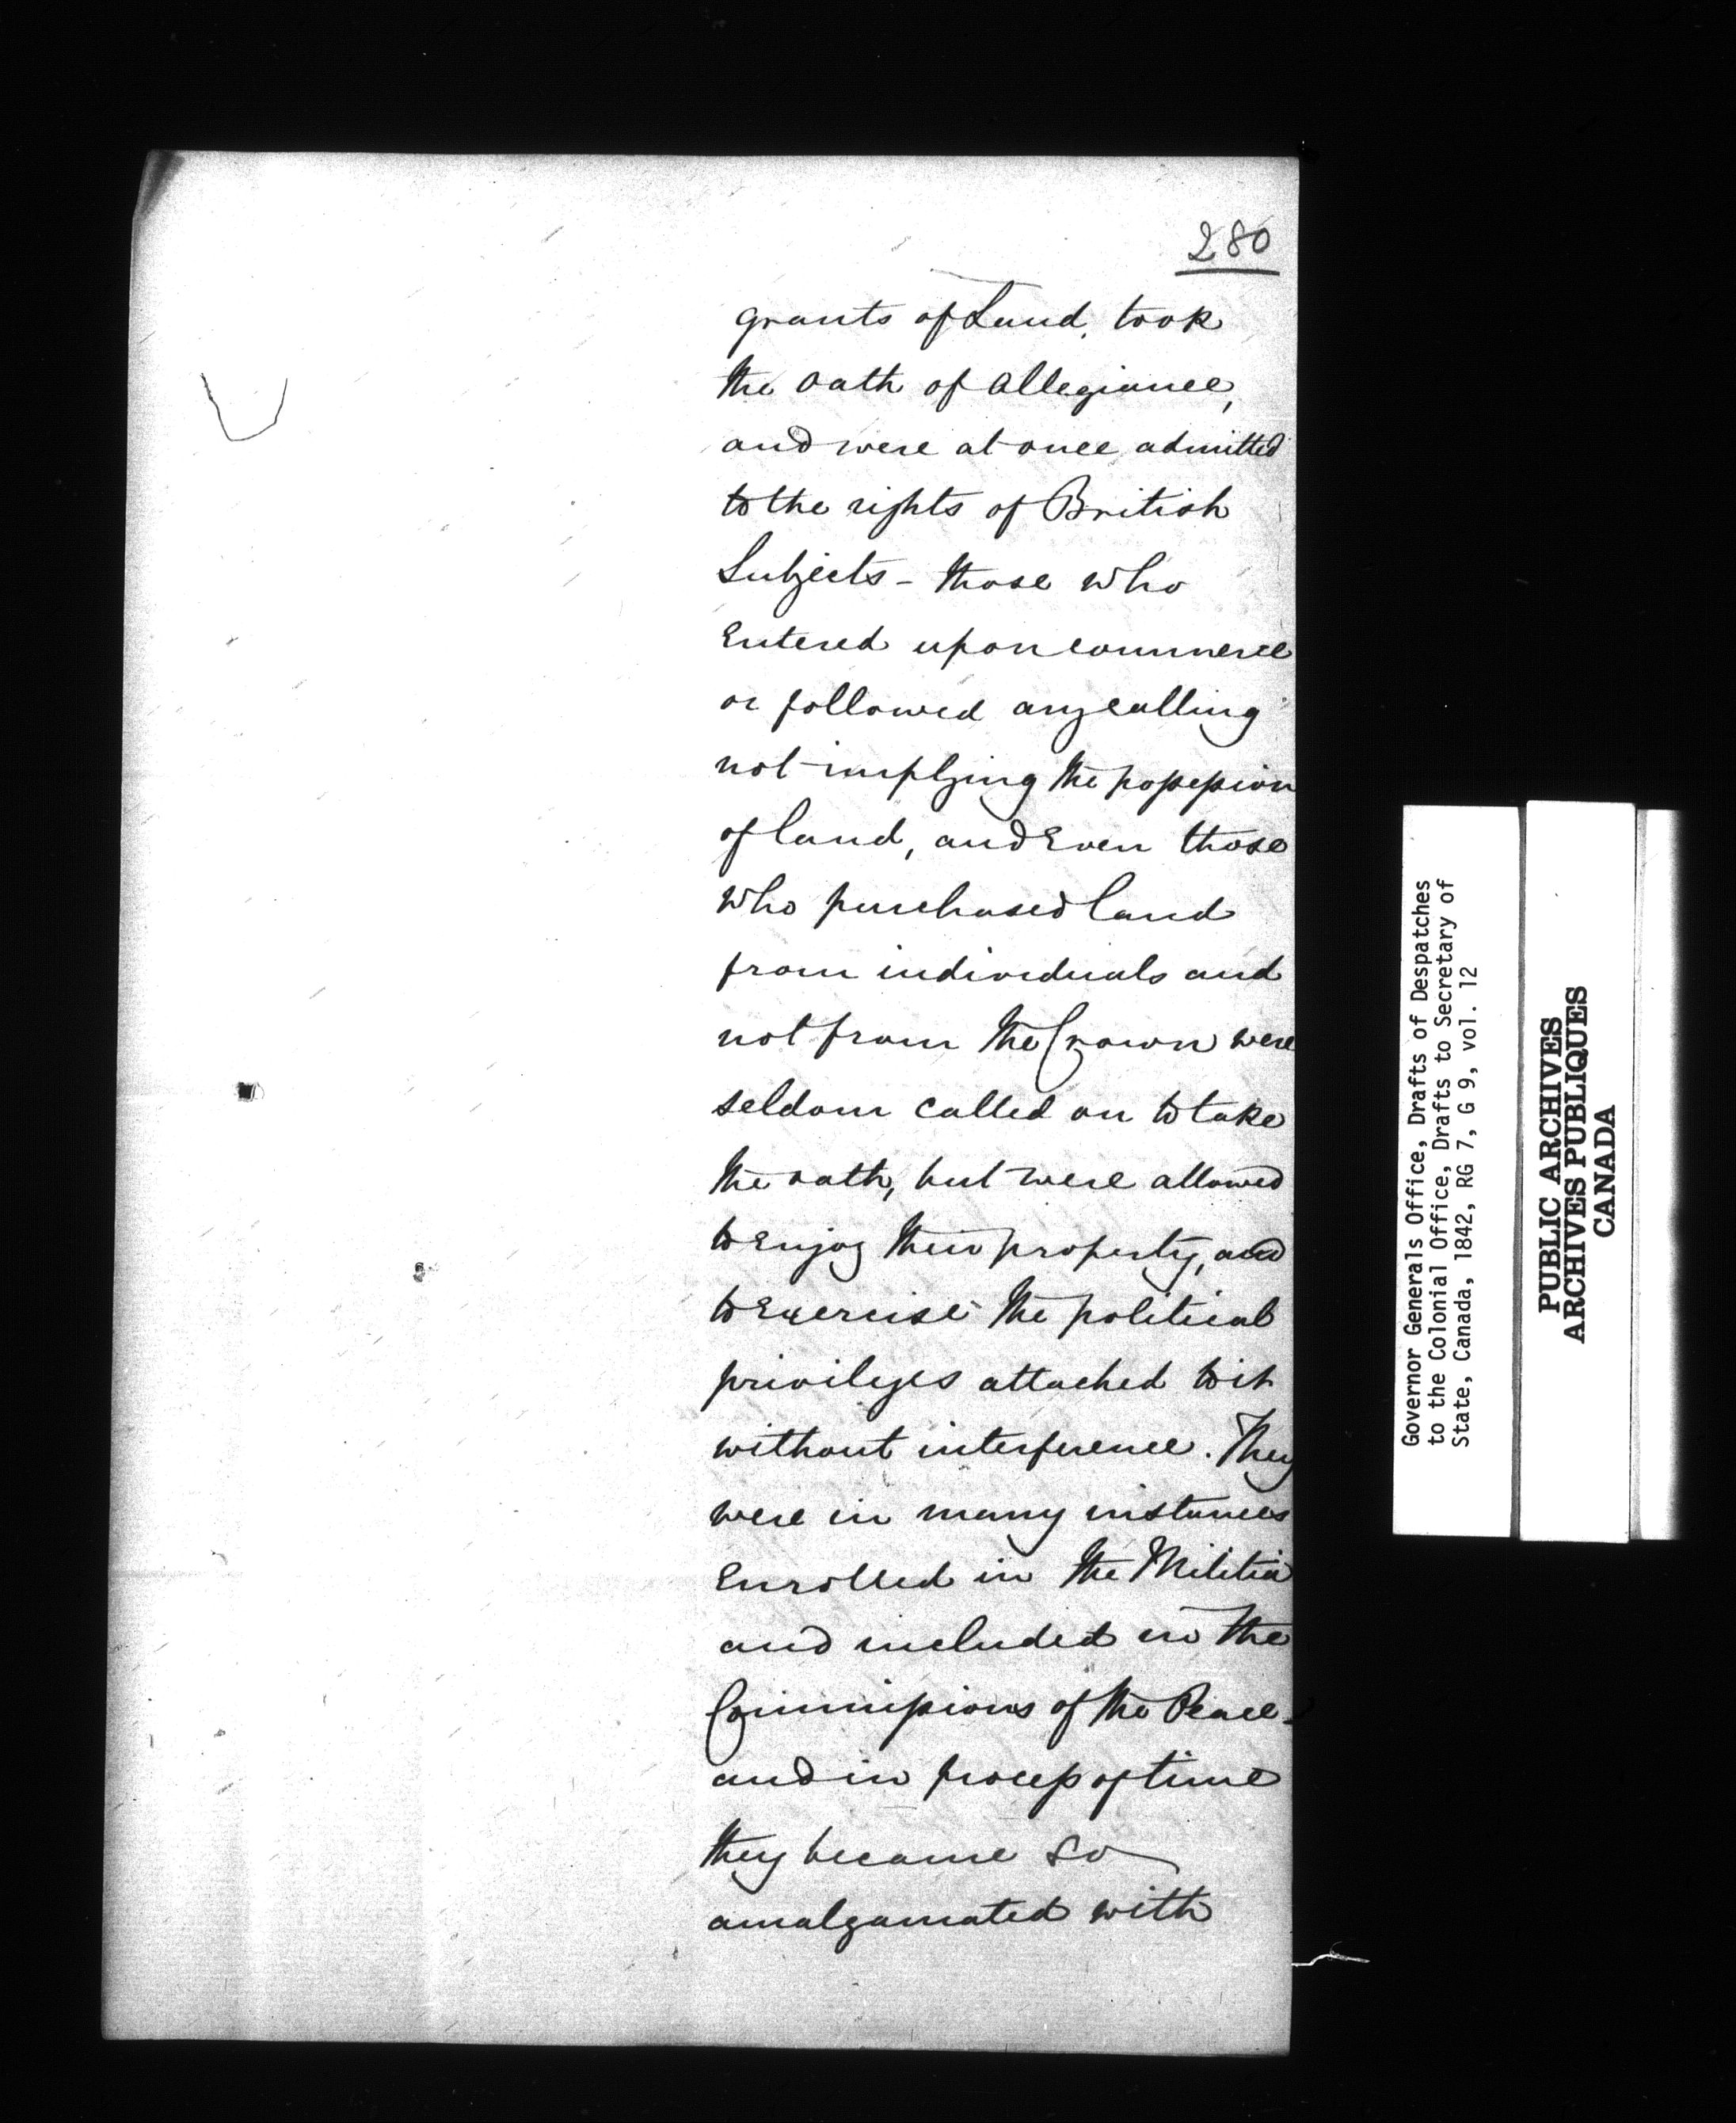 280
grants of Land, took
the oath of allegiance,
and were at once admitted
to the rights of British
Subjects - those who
Entered upon commerce
or followed any calling
not implying the possession
of land, and Even those
who purchased land
from individuals and
not from the Crown were
seldom called on to take
the oath, but were allowed
to Enjoy their property, and
to Exercise the political
privileges attached to it
without interference. They
were in many instances
Enrolled in the Militia
and included in the
Commissions of the Peace -
and in process of time
they became so
amalgamated with
Governor Generals Office, Drafts of Despatches
to the Colonial Office, Drafts to Secretary of
State, Canada, 1842, RG 7, G 9, vol. 12
PUBLIC ARCHIVES
ARCHIVES PUBLIQUES
CANADA